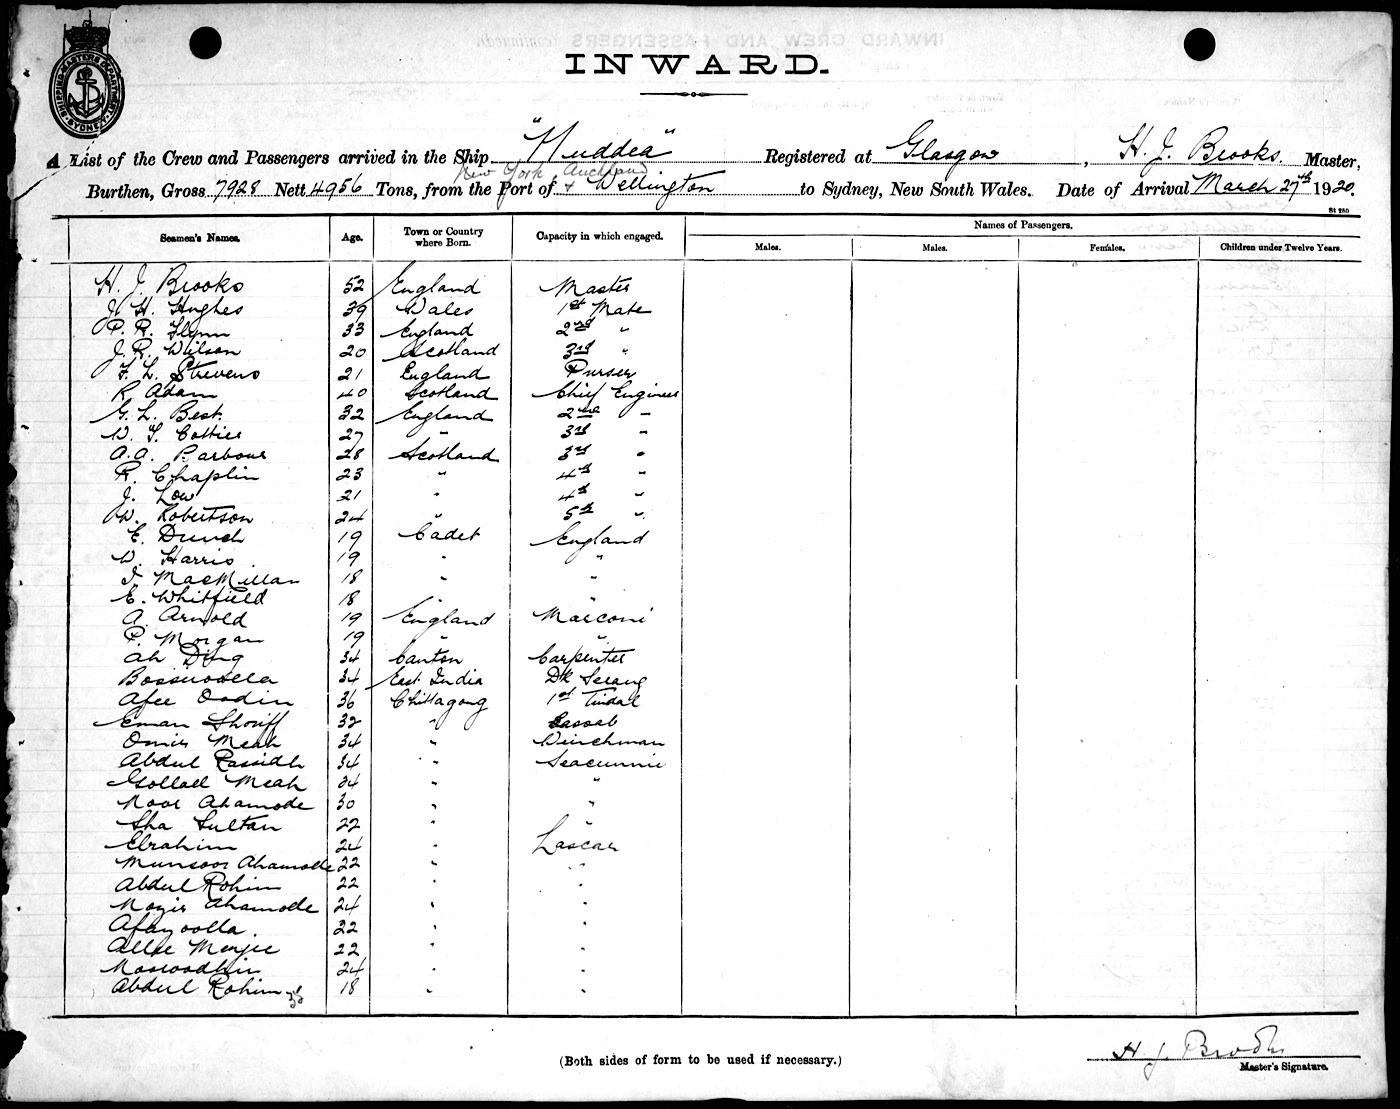 SHIPPING MASTERS DEPARTMENT
SYDNEY
INWARD.
A List of the Crew and Passengers arrived in the Ship "Huddea" Registered at Glasgow, H. J. Brooks. Master,
New York Auckland
Burthen, Gross 7928 Nett 4956 Tons, from the Port of & Wellington to Sydney, New South Wales. Date of Arrival March 27th 1920.
St 250
Seamen's Names. Age. Town or Country where Born. Capacity in which engaged. Names of Passengers.
Males. Males. Females. Children under Twelve Years.
H. J. Brooks 52 England Master
J. H. Hughes 39 Wales 1st Mate
P. R. Flynn 33 England 2nd "
J. R. Wilson 20 Scotland 3rd "
F. L. Strevens 21 England Purser
R. Adam 40 Scotland Chief Engineer
G. L. Best. 32 England 2nd "
W. F. Cottier 27 " 3rd "
A. A. Barbour 28 Scotland 3rd "
R. Chaplin 23 " 4th "
J. Low 21 " 4th "
W. Robertson 24 " 5th "
E. Dunch 19 Cadet England
W. Harris 19 " "
I. MacMillan 18 " "
E. Whitfield 18 " "
A. Arnold 19 England Marconi
P. Morgan 19 " "
Ah Ding 34 Canton Carpenter
34 East India Dk Serang
Afee Oodin 36 Chittagong 1st Tindal
Eman Shoriff 32 " Cassab
Omir Meah 34 " Winchman
Abdul Rassidh 34 " Seacunnie
Gollael Meah 34 " "
Noor Ahamode 30 " "
Sha Sultan 22 " "
Ebrahim 24 " Lascar
Munsoor Ahamode 22 " "
Abdul Rohim 22 " "
Nozir Ahamode 24 " "
Afazoolla. 22 " "
Allee Monjee 22 " "
24 " "
Abdul Rohim 18 " "
(Both sides of form to be used if necessary.)
H. J. Brooks
Master's Signature.